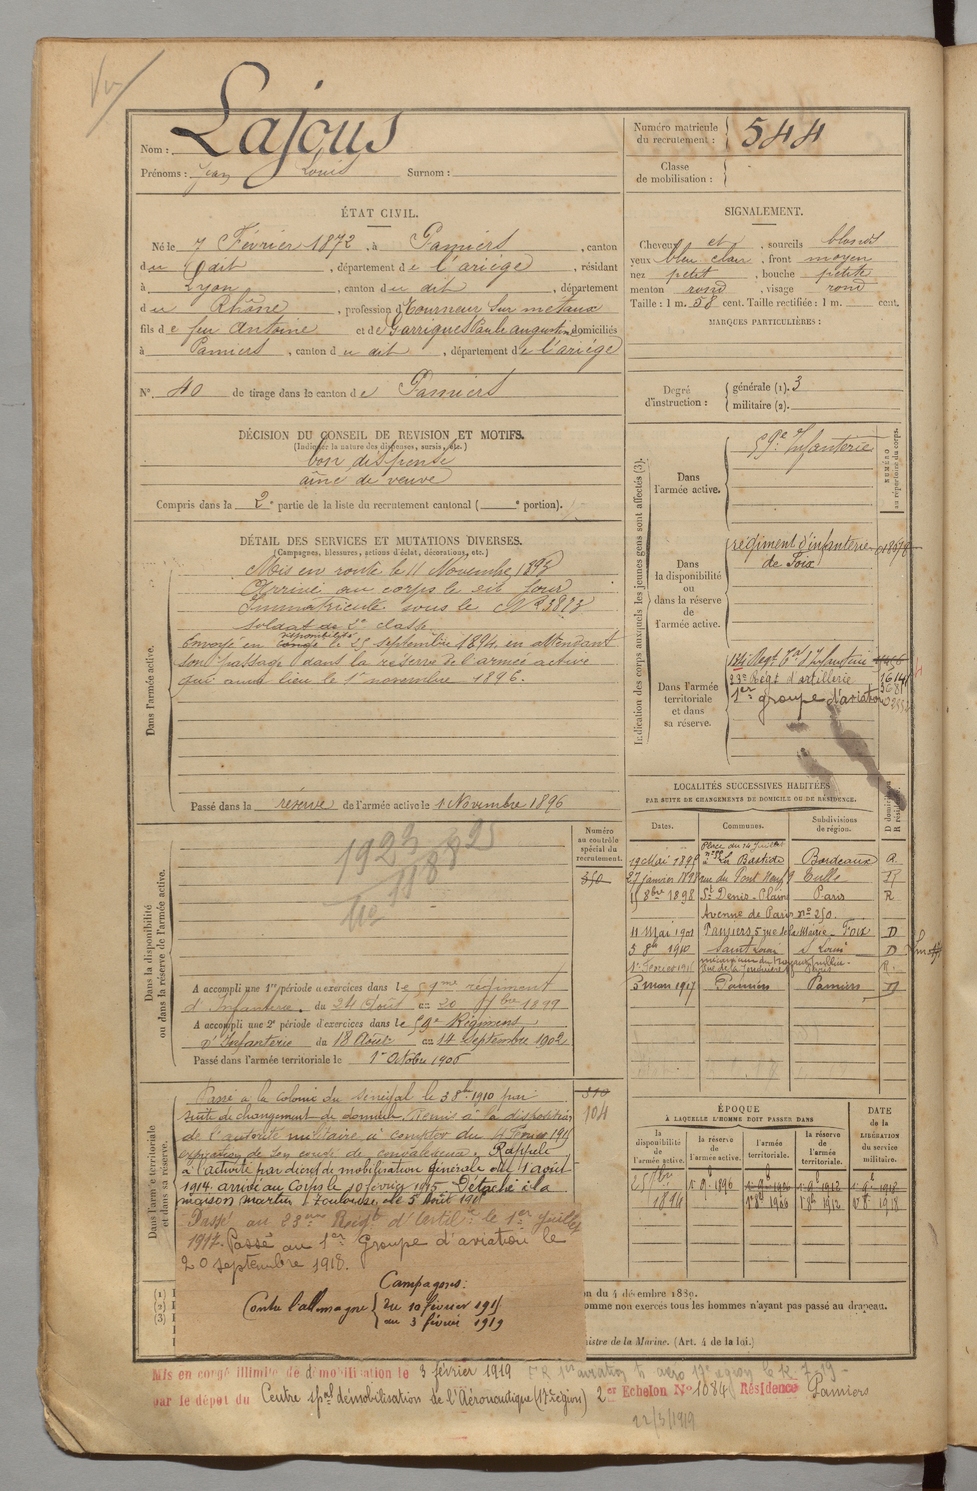 Nom : Lajous
Prénoms : Jean Louis Surnom :
Numéro matricule du recrutement : 544
Classe de mobilisation :
ÉTAT CIVIL.
Né le 7 Février 1872, à Pamiers, canton
du dit, département de l'ariège, résidant
à Lyon, canton du dit, département
du Rhône, profession d Tourneur sur métaux
fils de feu Antoine et de Garrigues Paule augustine, domiciliés
à Pamiers, canton du dit, département de l'ariége
N° 40 de tirage dans le canton de Pamiers
SIGNALEMENT.
Cheveux et, sourcils blonds
yeux bleu clair, front moyen
nez petit, bouche petite
menton rond, visage rond
Taille : 1 m. 58 cent. Taille rectifiée : 1 m. cent.
MARQUES PARTICULIÈRES :
Degré d'instruction : générale (1). 3
militaire (2).
DÉCISION DU CONSEIL DE REVISION ET MOTIFS.
(Indiquer la nature des dispenses, sursis, etc.)
bon dispensé
aîné de veuve
Compris dans la 2e partie de la liste du recrutement cantonal ( e portion).
DÉTAIL DES SERVICES ET MUTATIONS DIVERSES.
(Campagnes, blessures, actions d'éclat, décorations, etc.)
Dans l'armée active.
Mis en route le 11 Novembre 1893
Arrivé au corps le dit jour
Immatriculé sous le N° 3813
Soldat de 2e classe
Envoyé en congé disponibilité le 25 septembre 1894 en attendant
son passage dans la réserve de l'armée active
qui aura lieu le 1er novembre 1896.
Passé dans la réserve de l'armée active le 1 Novembre 1896
Indication des corps auxquels les jeunes gens sont affectés (3).
NUMÉRO au répertoire du corps.
Dans l'armée active.
59e Infanterie
Dans la disponibilité ou dans la réserve de l'armée active.
régiment d'infanterie
de Foix
Dans l'armée territoriale et dans sa réserve.
134e Régt Tal d'Infanterie
23e Régt d'artillerie
1er groupe d'aviation
Dans la disponibilité ou dans la réserve de l'armée active.
Numéro au contrôle spécial du recrutement.
350
A accompli une 1re période d'exercices dans le 59me régiment
d'Infanterie. du 24 Août au 20 7bre 1899
A accompli une 2e période d'exercices dans le 59e Régiment
d'Infanterie du 18 Août au 14 Septembre 1902
Passé dans l'armée territoriale le 1er Octobre 1906
LOCALITÉS SUCCESSIVES HABITÉES
PAR SUITE DE CHANGEMENTS DE DOMICILE OU DE RÉSIDENCE.
Dates. Communes. Subdivisions de région.
Place du 14 Juillet
à La Bastide Bordeaux
27 janvier 1898 rue du Pont Neuf 9 Tulle
15 8bre 1898 St Denis Plaine Paris R
Avenue de Paris n° 250.
11 Mai 1901 Pamiers, 5 rue de la Mairie Foix D
3 8bre 1910 Saint Louis St Louis D
3 mars 1917 Pamiers Pamiers D
Dans l'armée territoriale et dans sa réserve.
104
Passé à la colonie du Sénégal le 3 8bre 1910 par
suite de changement de domicile. Remis à la disposition
de l'autorité militaire à compter du
expiration de son congé de convalescence. Rappelé
à l'activité par décret de mobilisation générale du 1 août
1914. arrivé au Corps le 10 février 1915. Détaché à la
maison Martin, Toulouse, le 5 Août 191
Passé au 23eme Régt d'Artilie le 1er Juillet
1917. Passé au 1er Groupe d'aviation le
20 septembre 1918.
Campagnes:
Contre l'allemagne du 10 février 1915
au 3 février 1919
ÉPOQUE
À LAQUELLE L'HOMME DOIT PASSER DANS
la disponibilité de l'armée active. la réserve de l'armée active. l'armée territoriale. la réserve de l'armée territoriale.
DATE de la LIBÉRATION du service militaire.
(1)
(2)
(3)
du 4 décembre 1889.
omme non exercés tous les hommes n'ayant pas passé au drapeau.
nistre de la Marine. (Art. 4 de la loi.)
Mis en congé illimité de démobilisation le 3 février 1919
par le dépôt du Centre spal démobilisation de l'Aéronautique (17e région) 2er Echelon N° 1084 Résidence Pamiers
22/3/1919